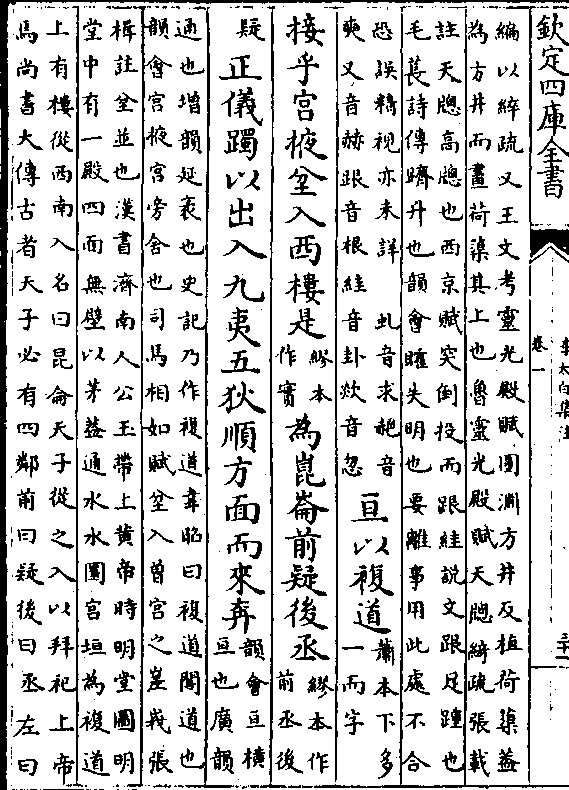 欽定四庫全書
李太白集注
卷一
編以綷疏又王文考靈光殿賦圜淵方井反植荷蕖蓋
為方井而畫荷蕖其上也魯靈光殿賦天牕綺疏張載
註天牕高牕也西京賦突倒投而跟絓說文跟足踵也
毛萇詩傳躋升也韻會矐失明也要離事用此處不合
恐誤精視亦未詳 虬音求赩音
奭又音赫跟音根絓音卦欻音忽
亘以複道
蕭本下多
一而字
接乎宮掖坌入西樓是
繆本
作實
為崑崙前疑後丞
繆本作
前丞後
疑
正儀躅以出入九夷五狄順方面而來奔
韻會亘橫
亘也廣韻
通也增韻延袤也史記乃作複道韋昭曰複道閣道也
韻會宮掖宮旁舍也司馬相如賦坌入曾宮之嵳峩張
楫註坌並也漢書濟南人公玉帶上黄帝時明堂圖明
堂中有一殿四面無壁以茅葢通水水圜宮垣為複道
上有樓從西南入名曰昆侖天子從之入以拜祀上帝
焉尚書大傳古者天子必有四鄰前曰疑後曰丞左曰